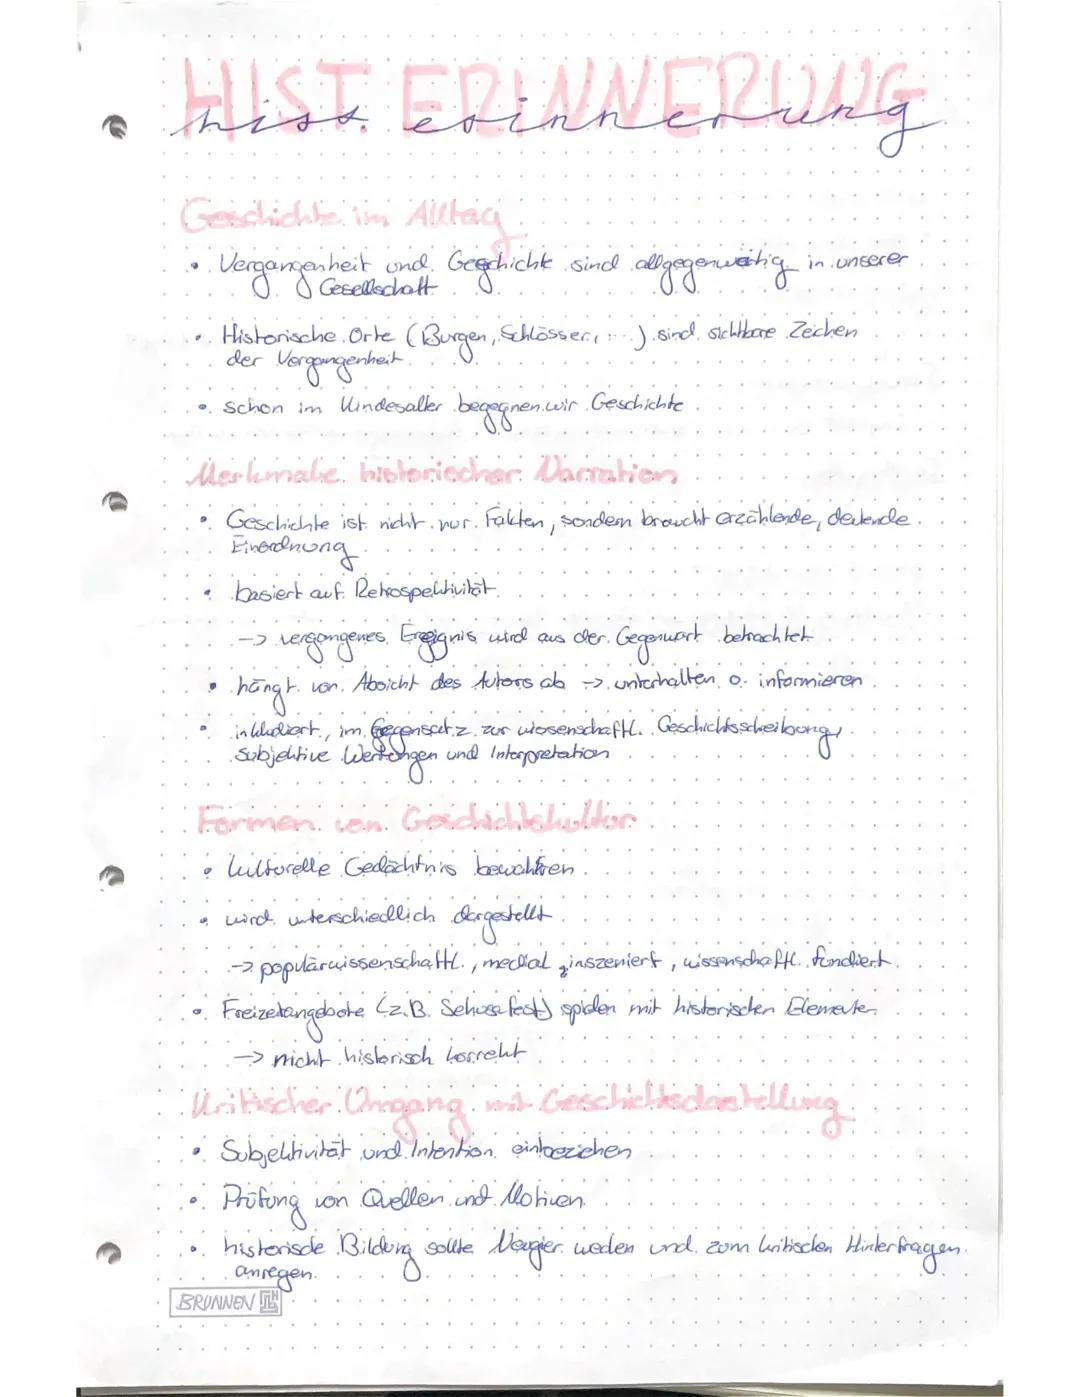 HIST. ERINNERUNG
hist. erinnerung
Geschichte im Alltag
• Vergangenheit und Geschichte sind allgegenwärtig in unserer
Gesellschaft
• Historische Orte (Burgen, Schlösser, ...) sind sichtbare Zeichen
der Vergangenheit
• schon im Kindesalter begegnen wir Geschichte
Merkmale historischer Narration
• Geschichte ist nicht nur Fakten, sondern braucht erzählende, deutende
Einordnung
• basiert auf Retrospektivität
-> vergangenes Ereignis wird aus der Gegenwart betrachtet
• hängt von Absicht des Autors ab -> unterhalten o. informieren
• inkludiert, im Gegensatz zur wissenschaftl. Geschichtsscheibung,
subjektive Wertungen und Interpretation
Formen von Geschichtskultur
• kulturelle Gedächtnis bewahren
• wird unterschiedlich dargestellt
-> populärwissenschaftl., medial inszeniert, wissenschaftl. fundiert
• Freizeitangebote (z.B. Sehusafest) spielen mit historischen Elementen
-> nicht historisch korrekt
Kritischer Umgang mit Geschichtsdarstellung
• Subjektivität und Intention einbeziehen
• Prüfung von Quellen und Motiven
• historische Bildung sollte Neugier wecken und zum kritischen Hinterfragen
anregen
BRUNNEN